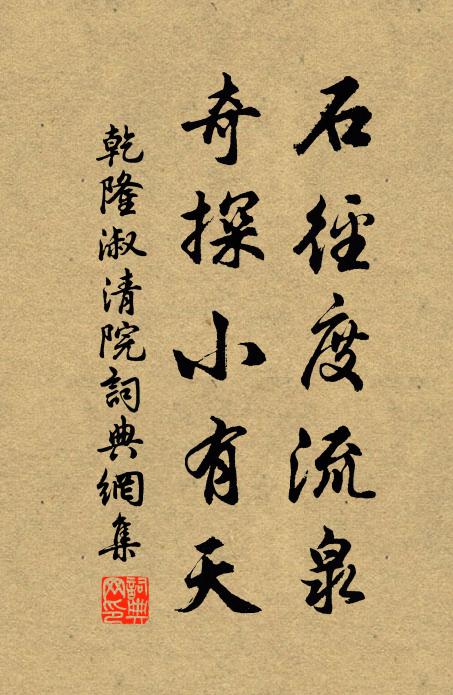 石徑度流泉
奇探小有天
乾隆淑清院詞典網集
詞典
网印